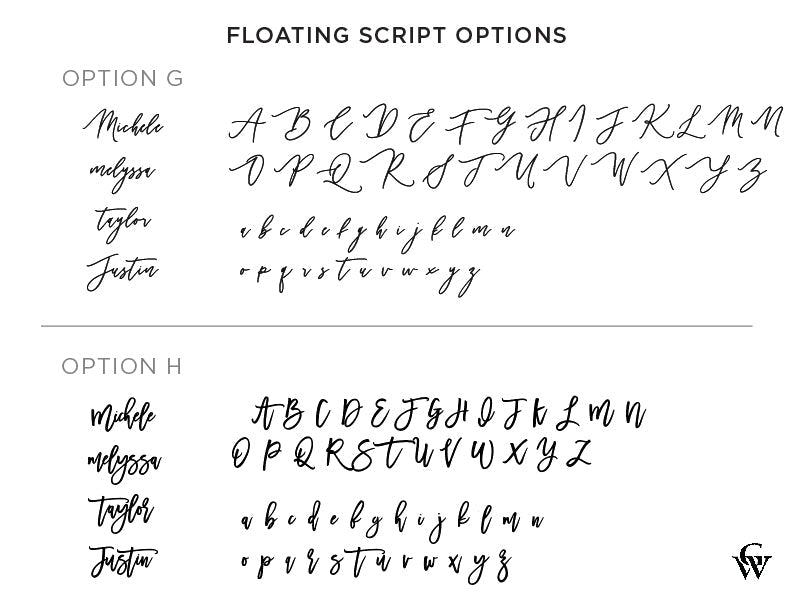 FLOATING SCRIPT OPTIONS
OPTION G
Michele A B C D E F G H I J K L M N
melyssa O P Q R S T U V W X Y Z
taylor a b c d e f g h i j k l m n
Justin o p q r s t u v w x y z
OPTION H
Michele A B C D E F G H I J K L M N
melyssa O P Q R S T U V W X Y Z
Taylor a b c d e f g h i j k l m n
Justin o p q r s t u v w x y z
GW